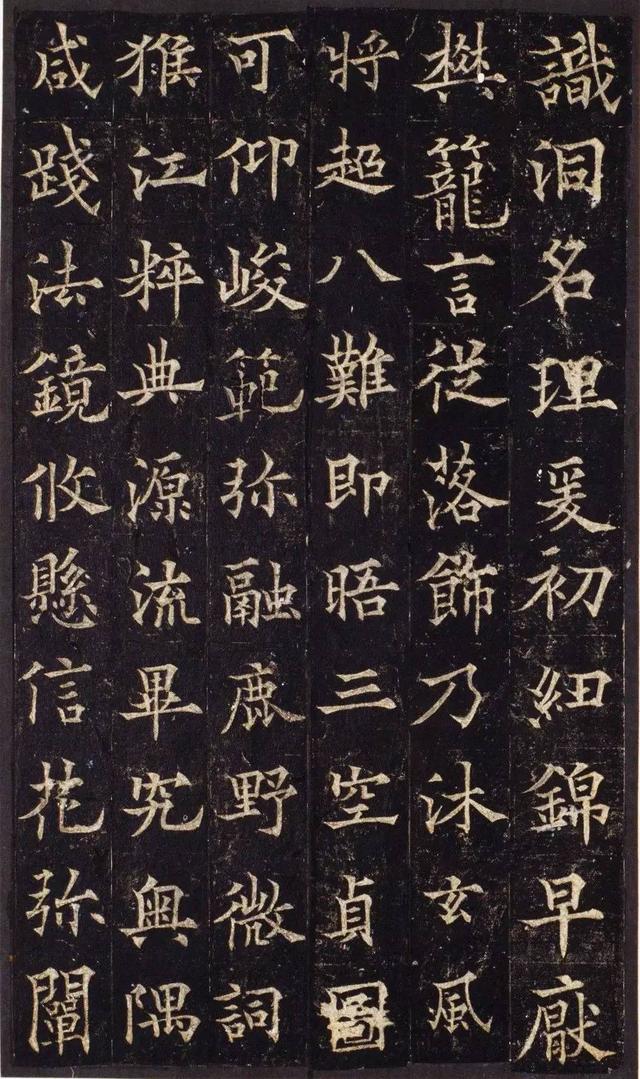 識洞名理爰初紐錦早厭
樊籠言從落飾乃沐玄風
將超八難即晤三空貞圖
可仰峻範弥融鹿野微詞
猴江粹典源流畢究奧隅
咸踐法鏡攸懸信花弥闡